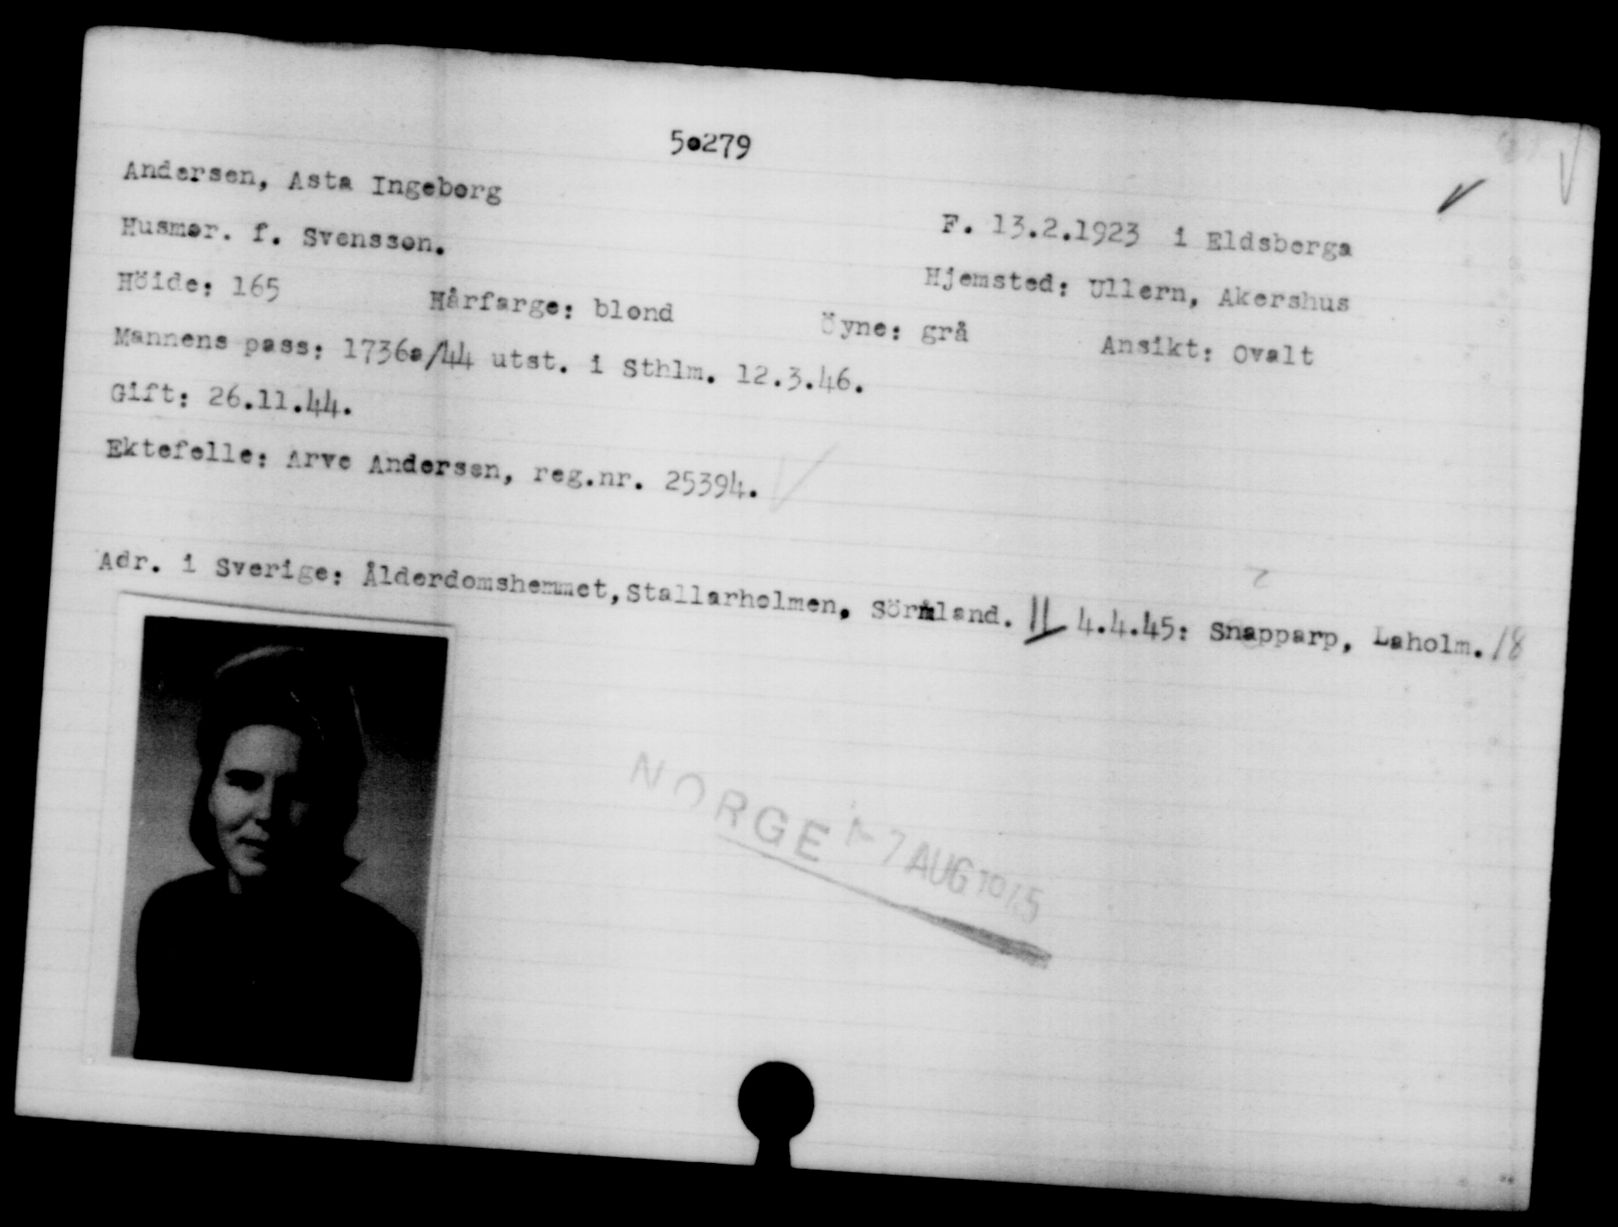 50279
Andersen, Asta Ingeborg
Husmor. f. Svensson.
F. 13.2.1923 i Eldsberga
Höide: 165
Hårfarge: blond
Hjemsted: Ullern, Akershus
Öyne: grå
Ansikt: Ovalt
Mannens pass: 1736a/44 utst. i Sthlm. 12.3.46.
Gift: 26.11.44.
Ektefelle: Arve Andersen, reg.nr. 25394.
Adr. i Sverige: Ålderdomshemmet, Stallarholmen, Sörmland. 11 4.4.45: Snapparp, Laholm. 18
NORGE 7 AUG 1945